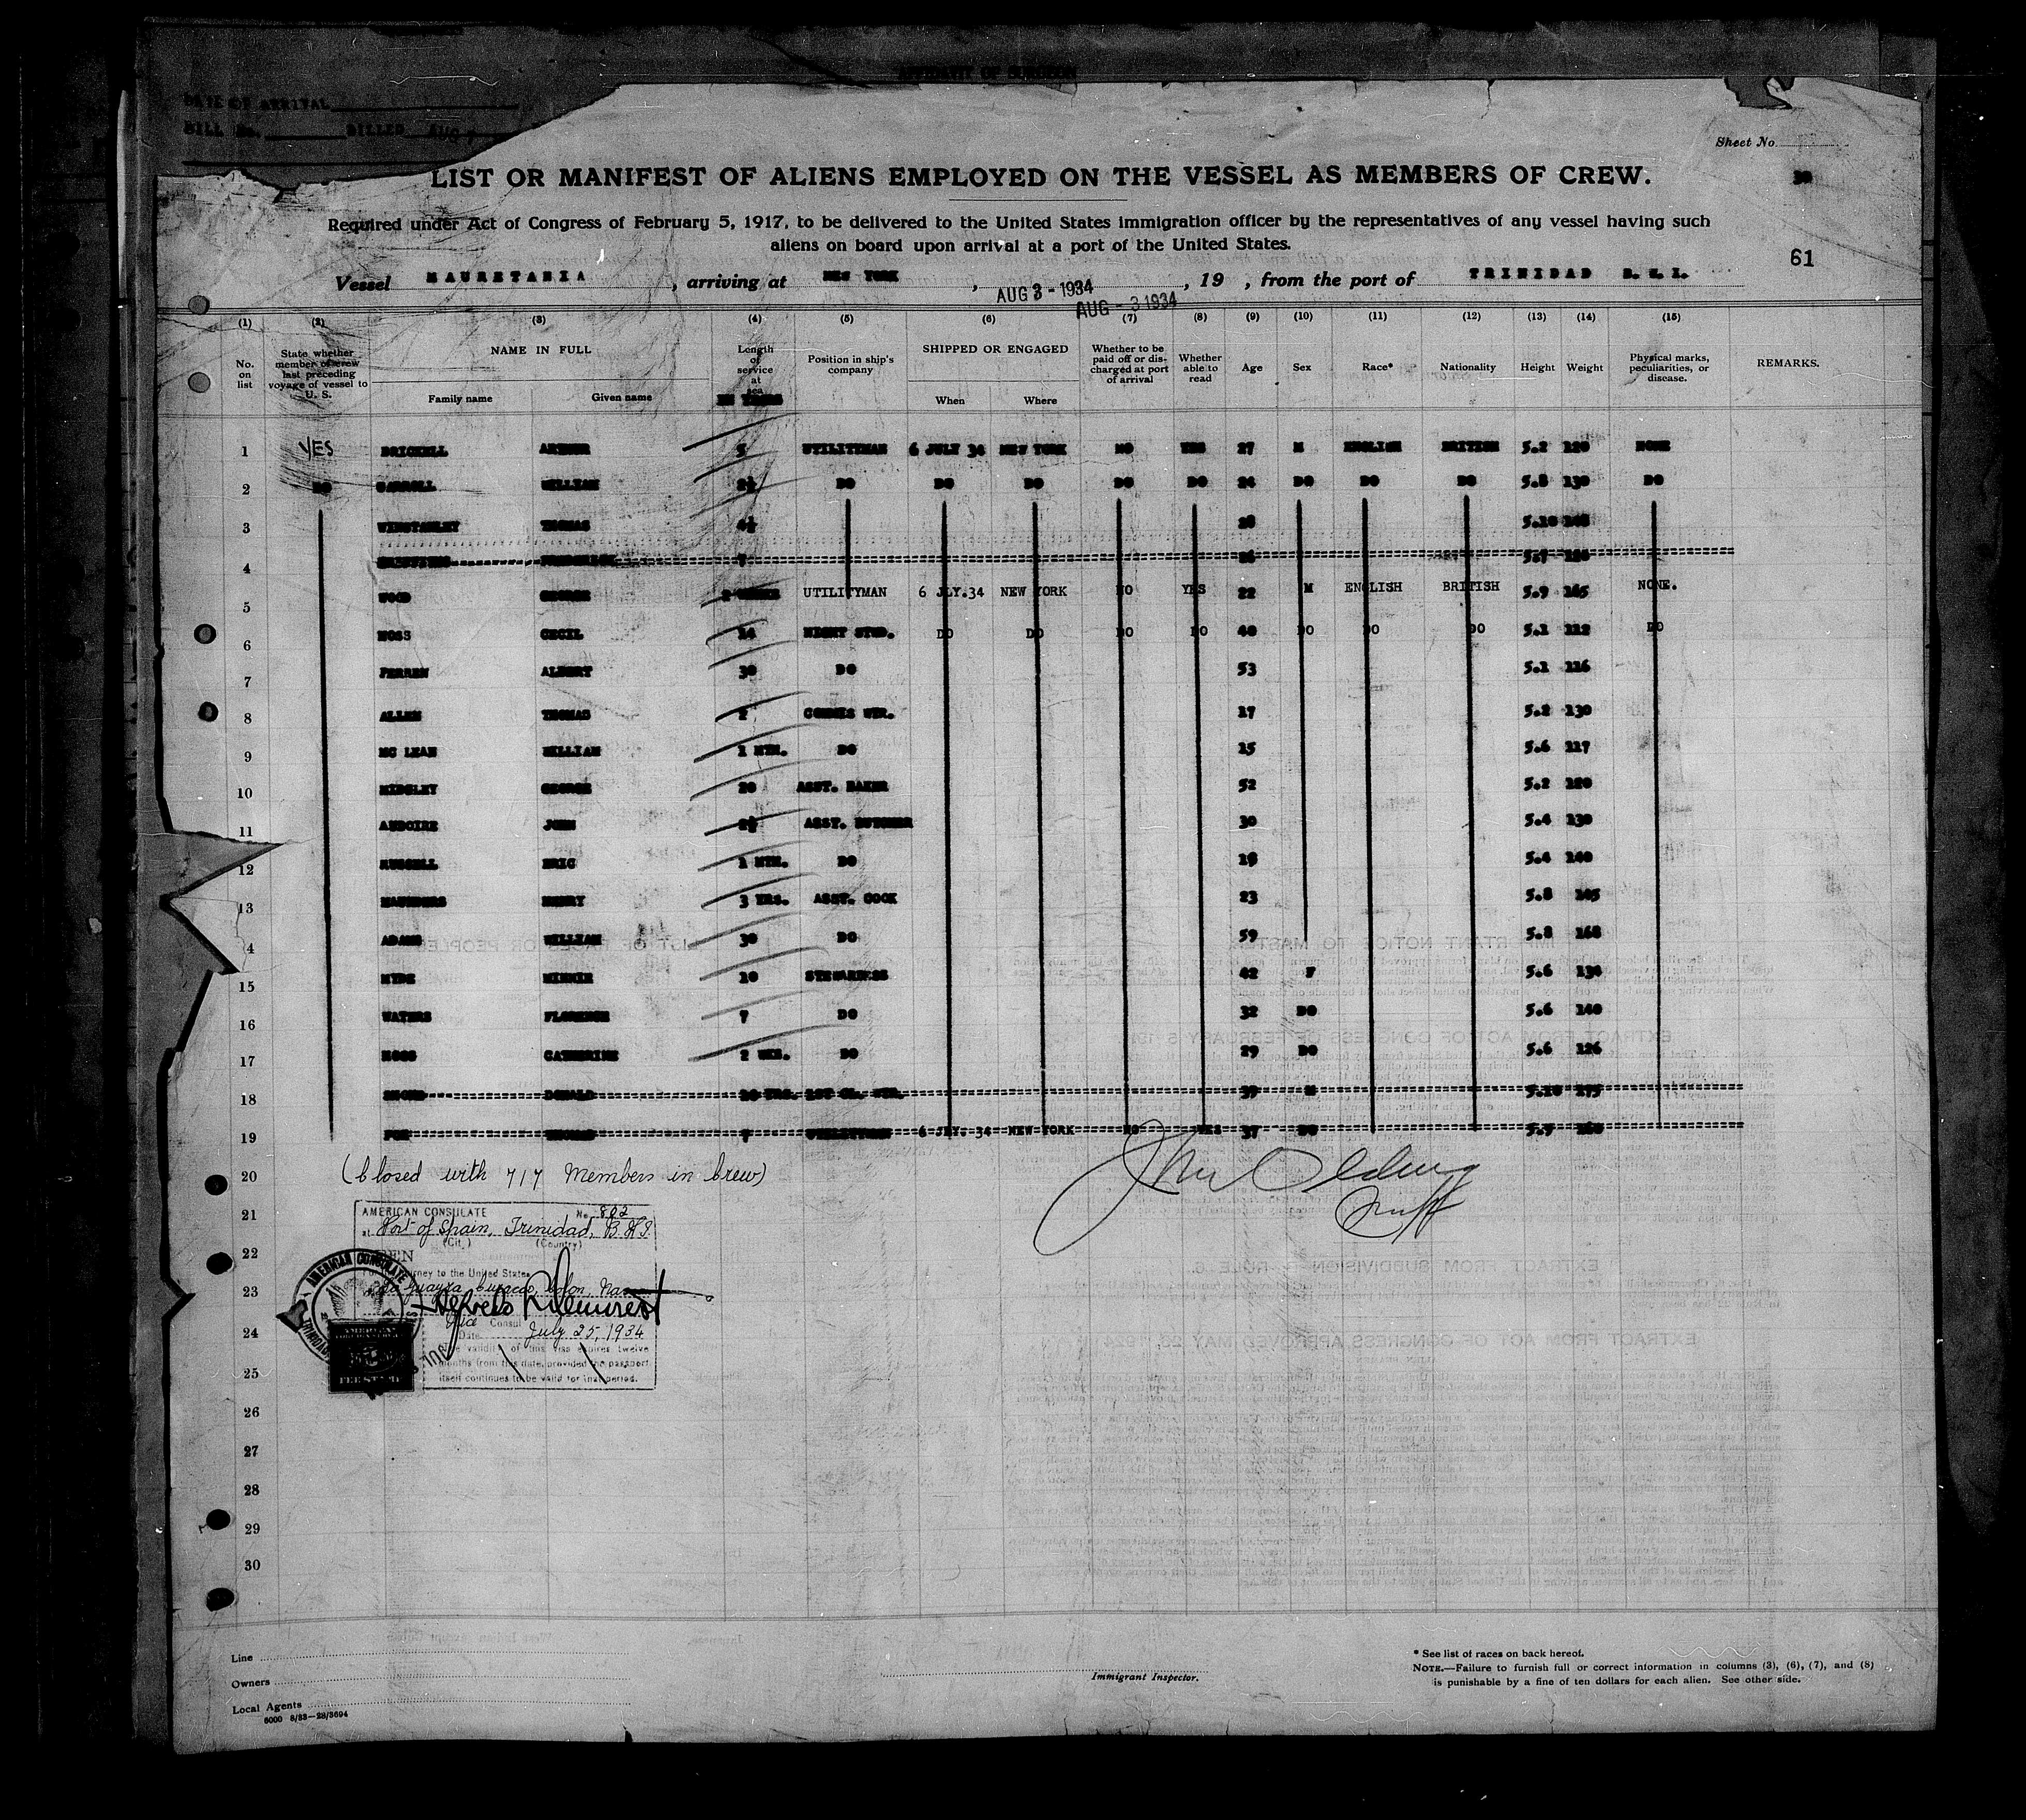 AFFIDAVIT OF SURGEON
DATE OF ARRIVAL
BILL No. BILLED AUG
Sheet No.
LIST OR MANIFEST OF ALIENS EMPLOYED ON THE VESSEL AS MEMBERS OF CREW.
Required under Act of Congress of February 5, 1917, to be delivered to the United States immigration officer by the representatives of any vessel having such
aliens on board upon arrival at a port of the United States.
61
Vessel MAURETANIA, arriving at NEW YORK, AUG 3 - 1934, 19 , from the port of TRINIDAD B.W.I.
AUG - 3 1934
(1) (2) (3) (4) (5) (6) (7) (8) (9) (10) (11) (12) (13) (14) (15)
No. on list State whether member of crew last preceding voyage of vessel to U. S. NAME IN FULL Family name Given name Length of service at IN YEARS Position in ship's company SHIPPED OR ENGAGED When Where Whether to be paid off or discharged at port of arrival Whether able to read Age Sex Race* Nationality Height Weight Physical marks, peculiarities, or disease. REMARKS.
1 YES BRICKELL ARTHUR 5 UTILITYMAN 6 JULY 34 NEW YORK NO YES 27 M ENGLISH BRITISH 5.2 120 NONE
2 DO CARROLL WILLIAM 2½ DO DO DO DO DO 24 DO DO DO 5.8 130 DO
3 WINSTANLEY THOMAS 4½ 28 5.10 148
4 FREDERICK 7 26 5.7
5 WOOD GEORGE 2 WEEKS UTILITYMAN 6 JLY.34 NEW YORK NO YES 22 M ENGLISH BRITISH 5.9 165 NONE.
6 MOSS CECIL 14 NIGHT STWD. DO DO DO DO 40 DO DO DO 5.1 112 DO
7 PERREN ALBERT 30 DO 53 5.1 116
8 ALLEN THOMAS 2 COMMIS WTR. 17 5.2 130
9 MC LEAN WILLIAM 1 MTH. DO 15 5.6 117
10 MIDGLEY GEORGE 20 ASST. BAKER 52 5.2 120
11 JOHN 2½ ASST. BUTCHER 30 5.4 130
12 RUSSELL ERIC 1 MTH. DO 18 5.4 140
13 MAUNDERS HENRY 3 YRS. ASST. COOK 23 5.8 145
14 ADAMS WILLIAM 30 DO 59 5.8 168
15 HYDE MINNIE 10 STEWARDESS 42 F 5.6 134
16 WATERS FLORENCE 7 DO 32 DO 5.6 140
17 MOSS CATHERINE 2 WKS. DO 29 DO 5.6 126
18 DONALD 20 YRS. 1ST CL. WTR. 39 M 5.10 175
19 FOX THOMAS 7 UTILITYMAN 6 JLY. 34 NEW YORK NO YES 37 DO 5.7 160
20 (Closed with 717 Members in Crew)
21 AMERICAN CONSULATE No. 802
at Port of Spain, Trinidad, B.W.I.
(City) (Country)
22
For the journey to the United States
23 La Guayra, Curacao, Colon, Nassau
Vice Consul
24 Date July 25, 1934
The validity of this visa expires twelve
months from this date, provided the passport
25 itself continues to be valid for that period.
AMERICAN CONSULATE
26
27
28
29
30
Line
Owners
Local Agents
6000 8/33—28/3694
Immigrant Inspector.
* See list of races on back hereof.
NOTE.—Failure to furnish full or correct information in columns (3), (6), (7), and (8)
is punishable by a fine of ten dollars for each alien. See other side.